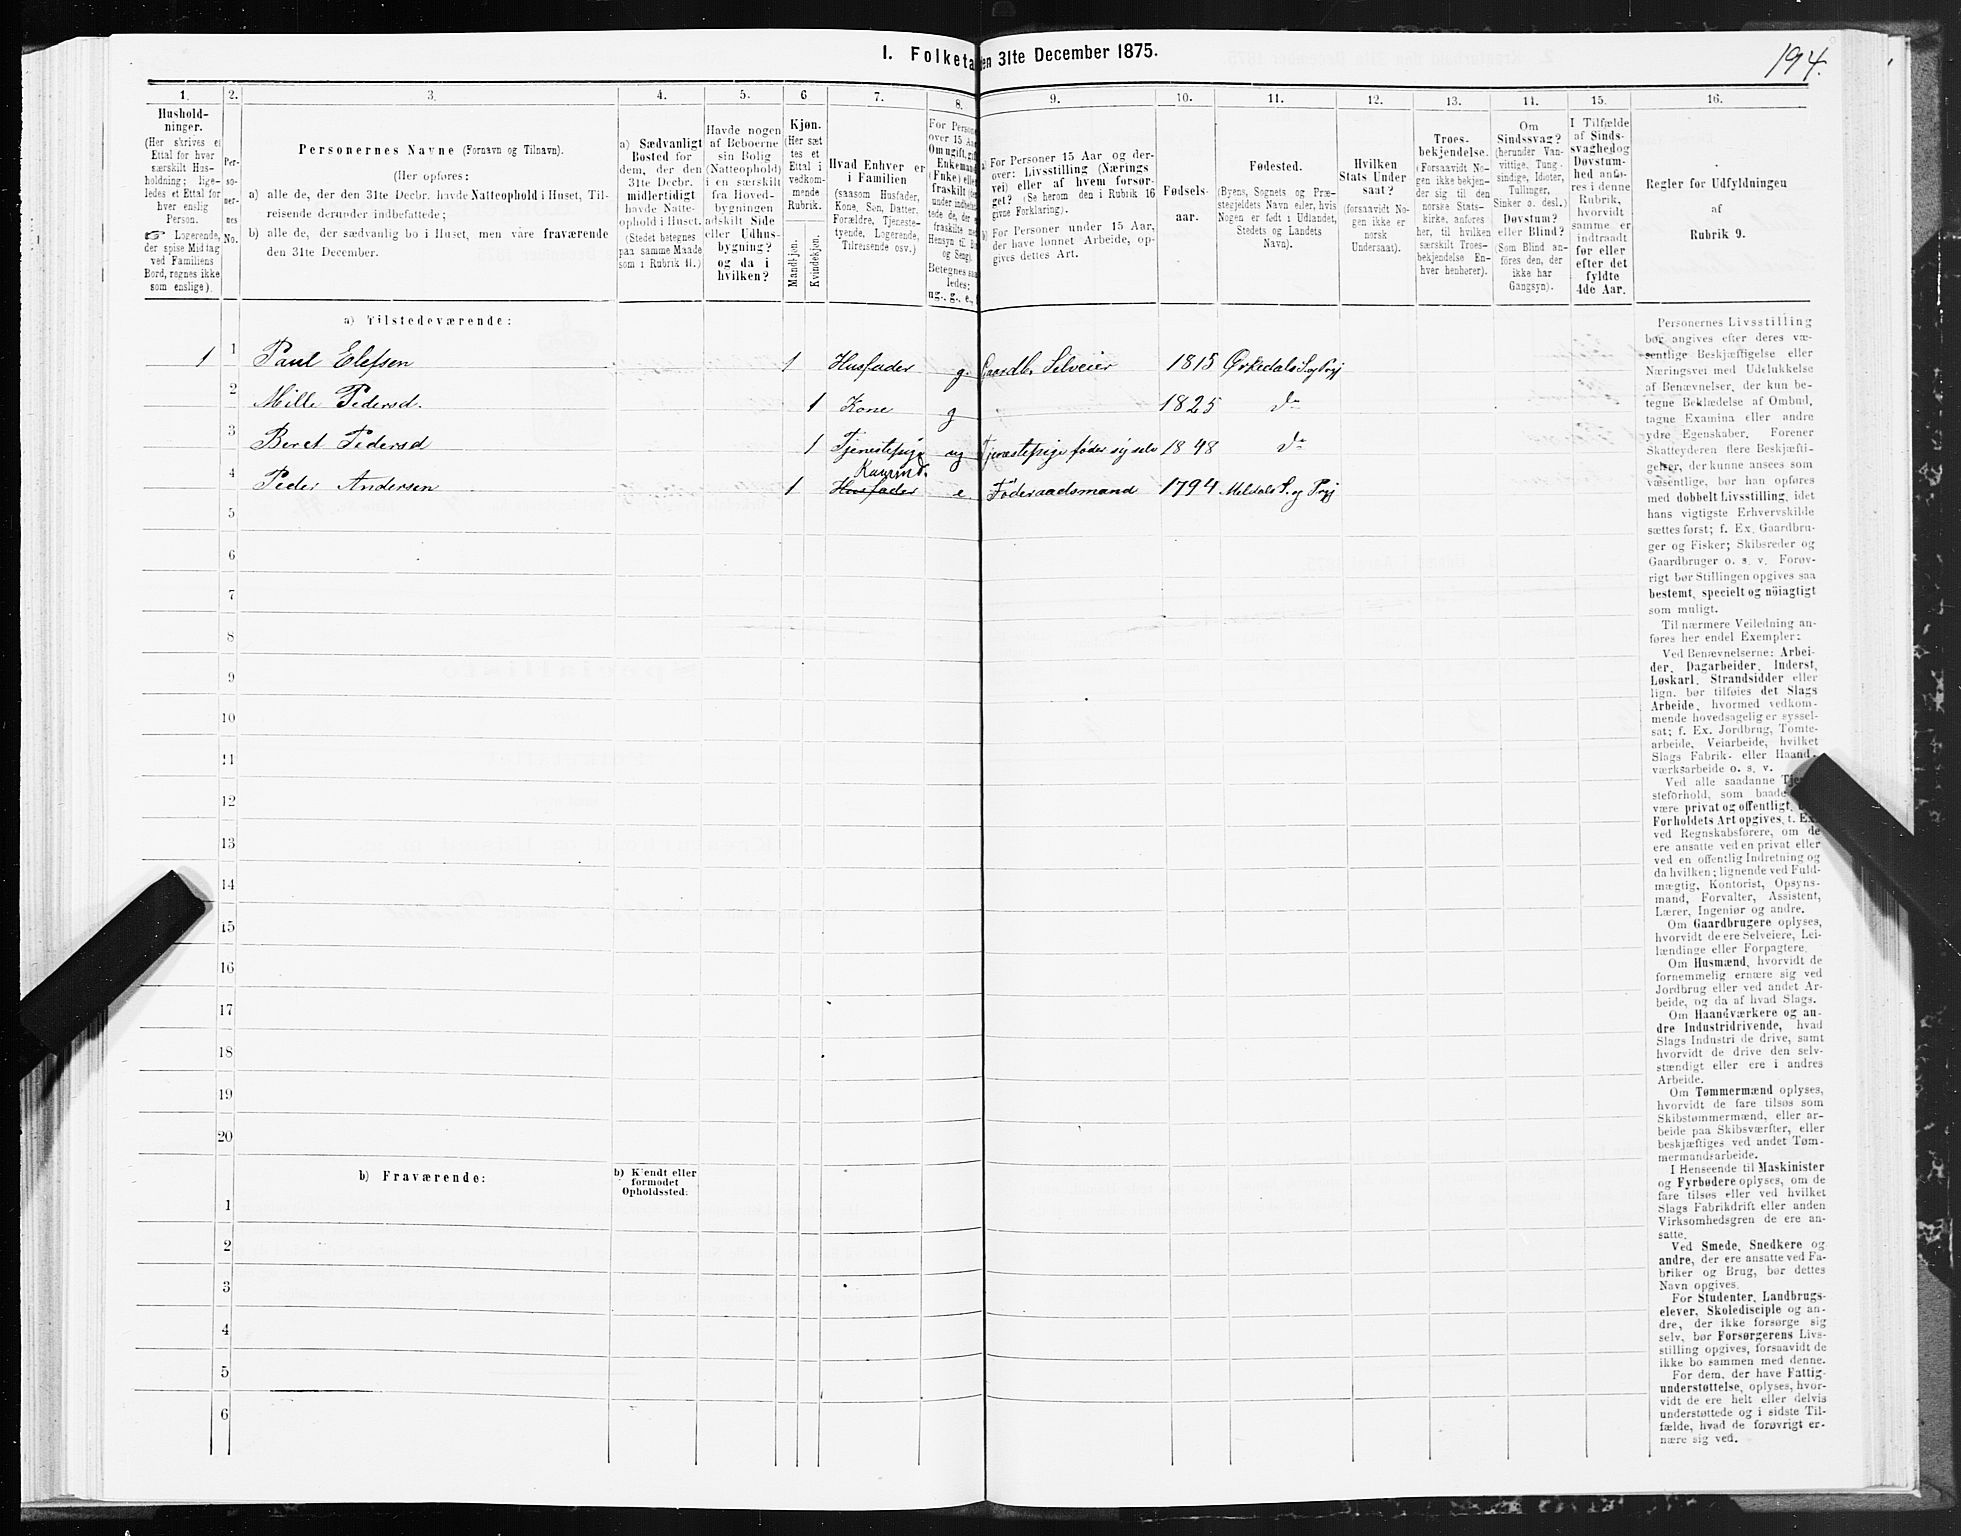 I. Folketa en 31te December 1875.
194.
1. 2. 3. 4. 5. 6 7. 8. 9. 10. 11. 12. 13. 14. 15. 16.
Hushold-
ninger.
(Her skrives et
Ettal for hver
særskilt Hus-
holdning; lige-
ledes et Ettal for
hver enslig
Person.
☞ Logerende,
der spise Middag
ved Familiens
Bord, regnes ikke
som enslige).
Per-
so-
ner-
nes
No.
Personernes Navne (Fornavn og Tilnavn).
(Her opføres:
a) alle de, der den 31te Decbr. havde Natteophold i Huset, Til-
reisende derunder indbefattede;
b) alle de, der sædvanlig bo i Huset, men våre fraværende
den 31te December.
a) Sædvanligt
Bosted for
dem, der den
31te Decbr.
midlertidigt
havde Natte-
ophold i Huset.
(Stedet betegnes
paa samme Maade
som i Rubrik 11.)
Havde nogen
af Beboerne
sin Bolig
(Natteophold)
i en særskilt
fra Hoved-
bygningen
adskilt Side
eller Udhus-
bygning?
og da i
hvilken?
Kjøn.
(Her sæt
tes et
Ettal i
vedkom-
mende
Rubrik.
Mandkjøn.
Kvindekjøn.
Hvad Enhver er
i Familien
(saasom Husfader,
Kone, Søn, Datter,
Forældre, Tjeneste-
tyende, Logerende,
Tilreisende osv.)
For Person
over 15 Aa
Om ugift, gif
Enkemand
(Enke) elle
fraskilt (de
under indbefat
tede de, der e
fraskilte me
Hensyn til B
og Seng).
Betegnes saa
ledes:
ug., g., e.,
a) For Personer 15 Aar og der-
over: Livsstilling (Nærings
vei) eller af hvem forsør-
get? (Se herom den i Rubrik 16
givne Forklaring).
b) For Personer under 15 Aar,
der have lønnet Arbeide, op-
gives dettes Art.
Fødsels-
aar.
Fødested.
(Byens, Sognets og Præ-
stegjeldets Navn eller, hvis
Nogen er født i Udlandet,
Stedets og Landets
Navn).
Hvilken
Stats Under
saat?
(forsaavidt No-
gen ikke er
norsk
Undersaat).
Troes-
bekjendelse.
(Forsaavidt No-
gen ikke bekjen-
der sig til den
norske Stats-
kirke, anføres
her, til hvilken
særskilt Troes-
bekjendelse En-
hver henhører).
Om
Sindssvag?
(herunder Van-
vittige, Tung-
sindige, Idioter,
Tullinger,
Sinker o. desl.)
Døvstum?
eller Blind?
(Som Blind an-
føres den, der
ikke har
Gangsyn).
I Tilfælde
af Sinds-
svaghed og
Døvstum-
hed anfø-
res i denne
Rubrik,
hvorvidt
samme er
indtraadt
før eller
efter det
fyldte
4de Aar.
Regler for Udfyldningen
af
Rubrik 9.
a) Tilstedeværende:
1 1 Paul Elefsen 1 Husfader g. Gaardb. Selveier 1815 Ørkedals S. og Prgj
2 Mille Pedersd. 1 Kone g 1825 do
3 Beret Pedersd 1 Tjenestepige ug Tjenestepige føder sy selv 1848 do
4 Peder Andersen 1 Husfader e Føderaadsmand 1794 Meldals S. og Prgj
5
6
7
8
9
10
11
12
13
14
15
16
17
18
19
20
b) Fraværende:
b) Kjendt eller
formodet
Opholdssted:
1
2
3
4
5
6
Personernes Livsstilling
bør angives efter deres væ-
sentlige Beskjæftigelse eller
Næringsvei med Udelukkelse
af Benævnelser, der kun be-
tegne Beklædelse af Ombud,
tagne Examina eller andre
ydre Egenskaber. Forener
Skatteyderen flere Beskjæfti-
gelser, der kunne ansees som
væsentlige, bør han opføres
med dobbelt Livsstilling, idet
hans vigtigste Erhvervskilde
sættes først; f. Ex. Gaardbru-
ger og Fisker; Skibsreder og
Gaardbruger o. s. v. Forøv-
rigt bør Stillingen opgives saa
bestemt, specielt og nöiagtigt
som muligt.
Til nærmere Veiledning an-
føres her endel Exempler:
Ved Benævnelserne: Arbei-
der, Dagarbeider, Inderst,
Løskarl, Strandsidder eller
lign. bør tilføies det Slags
Arbeide, hvormed vedkom-
mende hovedsagelig er syssel-
sat; f. Ex. Jordbrug, Tomte-
arbeide, Veiarbeide, hvilket
Slags Fabrik- eller Haand-
værksarbeide o. s. v.
Ved alle saadanne Tjene-
steforhold, som baade
være privat og offentligt,
Forholdets Art opgives, f. Ex.
ved Regnskabsførere, om de
ere ansatte ved en privat eller
ved en offentlig Indretning og
da hvilken; lignende ved Fuld-
mægtig, Kontorist, Opsyns-
mand, Forvalter, Assistent,
Lærer, Ingeniør og andre.
Om Gaardbrugere oplyses,
hvorvidt de ere Selveiere, Lei-
lændinge eller Forpagtere.
Om Husmænd, hvorvidt de
fornemmelig ernære sig ved
Jordbrug eller ved andet Ar-
beide, og da af hvad Slags.
Om Haandværkere og an-
dre Industridrivende, hvad
Slags Industri de drive, samt
hvorvidt de drive den selv-
stændigt eller ere i andres
Arbeide.
Om Tømmermænd oplyses,
hvorvidt de fare tilsøs som
Skibstømmermænd, eller ar-
beide paa Skibsværfter, eller
beskjæftiges ved andet Tøm-
mermandsarbeide.
I Henseende til Maskinister
og Fyrbødere oplyses, om de
fare tilsøs eller ved hvilket
Slags Fabrikdrift eller anden
Virksomhedsgren de ere an-
satte.
Ved Smede, Snedkere og
andre, der ere ansatte ved Fa-
briker og Brug, bør dettes
Navn opgives.
For Studenter, Landbrugs-
elever, Skoledisciple og an-
dre, der ikke forsørge sig
selv, bør Forsørgerens Livs-
stilling opgives, forsaavidt de
ikke bo sammen med denne.
For dem, der have Fattig-
understøttelse, oplyses, hvor-
vidt de ere helt eller delvis
understøttede og i sidste Til-
fælde, hvad de forøvrigt er-
nære sig ved.